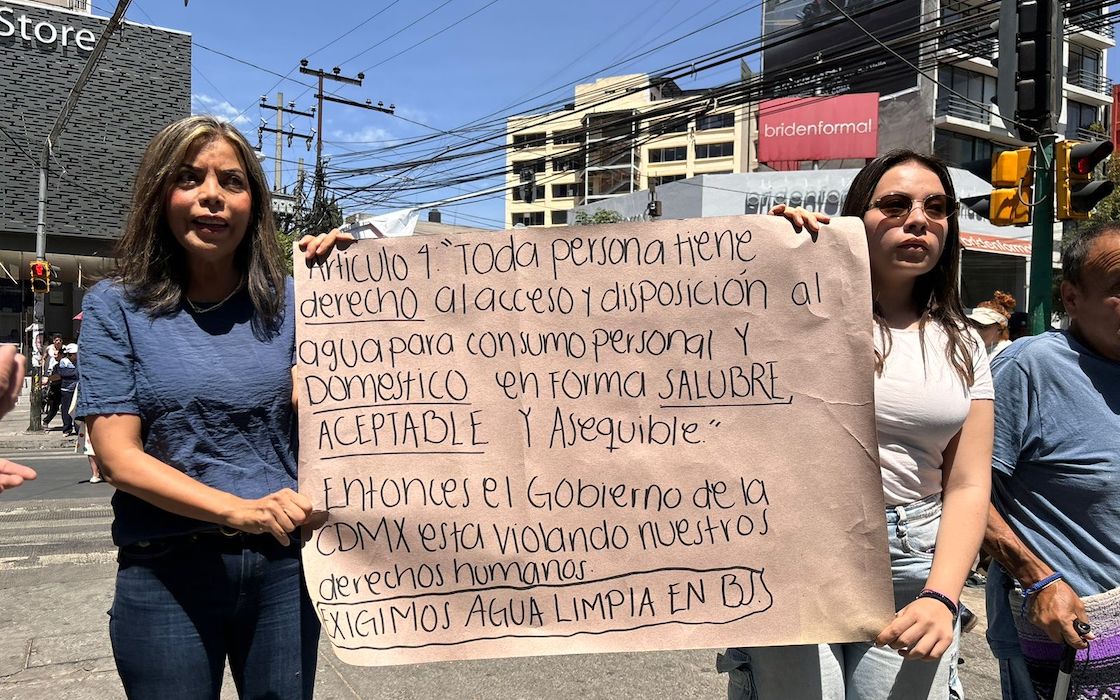 Store
bridenformal
bridenformal
Artículo 4. "Toda persona tiene
derecho al acceso y disposición al
agua para consumo personal y
DOMESTICO en forma SALUBRE,
ACEPTABLE y Asequible."
Entonces el Gobierno de la
CDMX esta violando nuestros
derechos humanos.
EXIGIMOS AGUA LIMPIA EN BJS